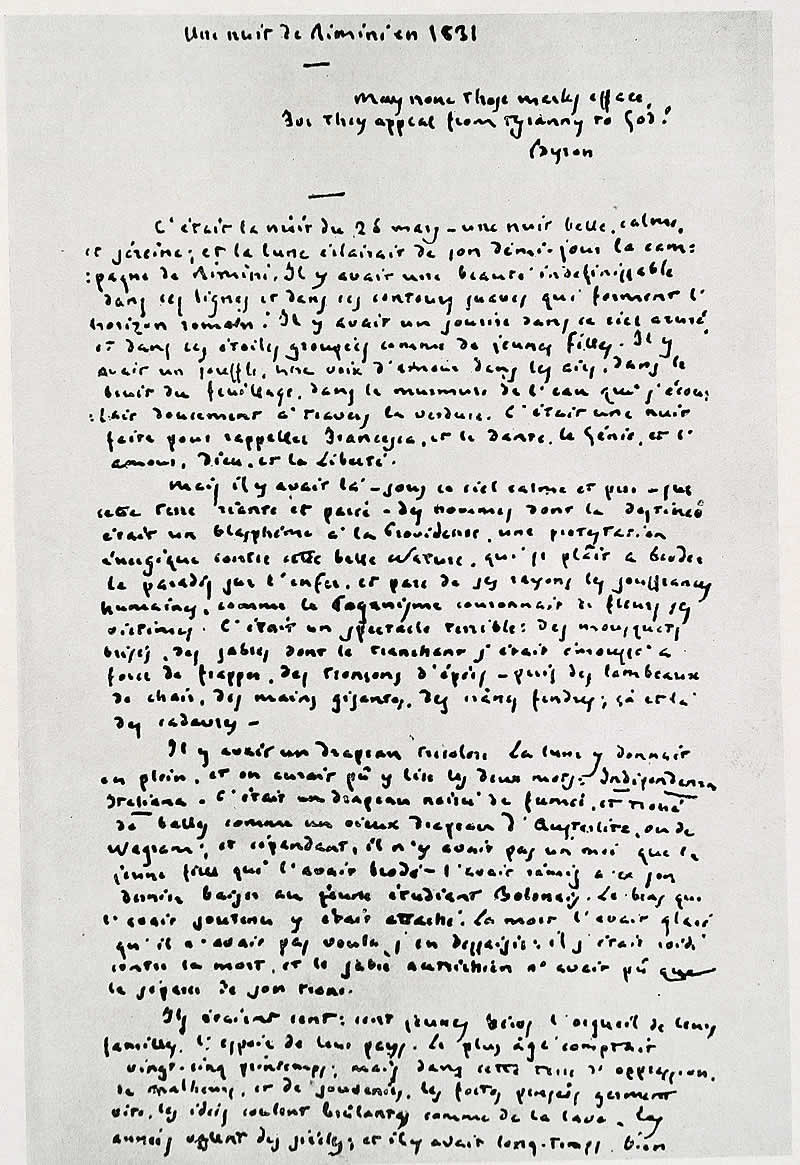 Une nuit de Rimini en 1831
May none those marks efface,
For they appeal from tyranny to God!
Byron
C'était la nuit du 26 mars – une nuit belle, calme,
et sereine; et la lune éclairait de son demi-jour la cam:
:pagne de Rimini. Il y avait une beauté indéfinissable
dans ces lignes et dans ces contours suaves qui forment l'
horizon romain: Il y avait un sourire dans ce ciel azuré
et dans ces étoiles groupées comme de jeunes filles. Il y
avait un souffle, une voix d'amour dans les airs, dans le
bruit du feuillage, dans le murmure de l'eau qui s'écou:
:lait doucement à travers la verdure. C'était une nuit
faite pour rappeller Francesca, et le Dante, le Génie, et l'
amour, Dieu, et la Liberté.
Mais il y avait là – sous ce ciel calme et pur – sur
cette terre riante et parée – des hommes dont la destinée
était un blasphème à la Providence, une protestation
énergique contre cette belle Nature, qui se plaît à broder
le paradis sur l'enfer, et pare de ses rayons les souffrances
humaines, comme le Paganisme couronnait de fleurs ses
victimes. C'était un spectacle terrible: des mousquets
brisés, des sabres dont le tranchant s'était émoussé à
force de frapper, des tronçons d'épées – puis des lambeaux
de chair, des mains gisantes, des crânes fendus; çà et là
des cadavres –
Il y avait un drapeau tricolore. La lune y donnait
en plein, et on aurait pû y lire les deux mots: Indipendenza
Italiana. C'était un drapeau noirci de fumée, et troué
de balles comme un vieux drapeau d'Austerlitz, ou de
Wagram; et cependant, il n'y avait pas un moi que la
jeune fille qui l'avait brodé – l'avait remis à ce son
dernier baiser au jeune étudiant Bolonais. Le bras qui
l'avait soutenu y était attaché. La mort l'avait glacé
qu'il n'avait pas voulu s'en dessaisir: il s'était roidi
contre la mort, et le sabre autrichien n'avait pû que
le séparer de son tronc.
Ils étaient cent: cent jeunes héros l'orgueil de leurs
familles, l'espoir de leur pays. Le plus âgé comptait
vingt-cinq printemps; mais dans cette terre d'oppression,
de malheurs, et de souvenirs, les fortes pensées germent
vite, les idées coulent brûlantes comme de la lave. Les
années y sont des siècles; et il y avait long-temps, bien